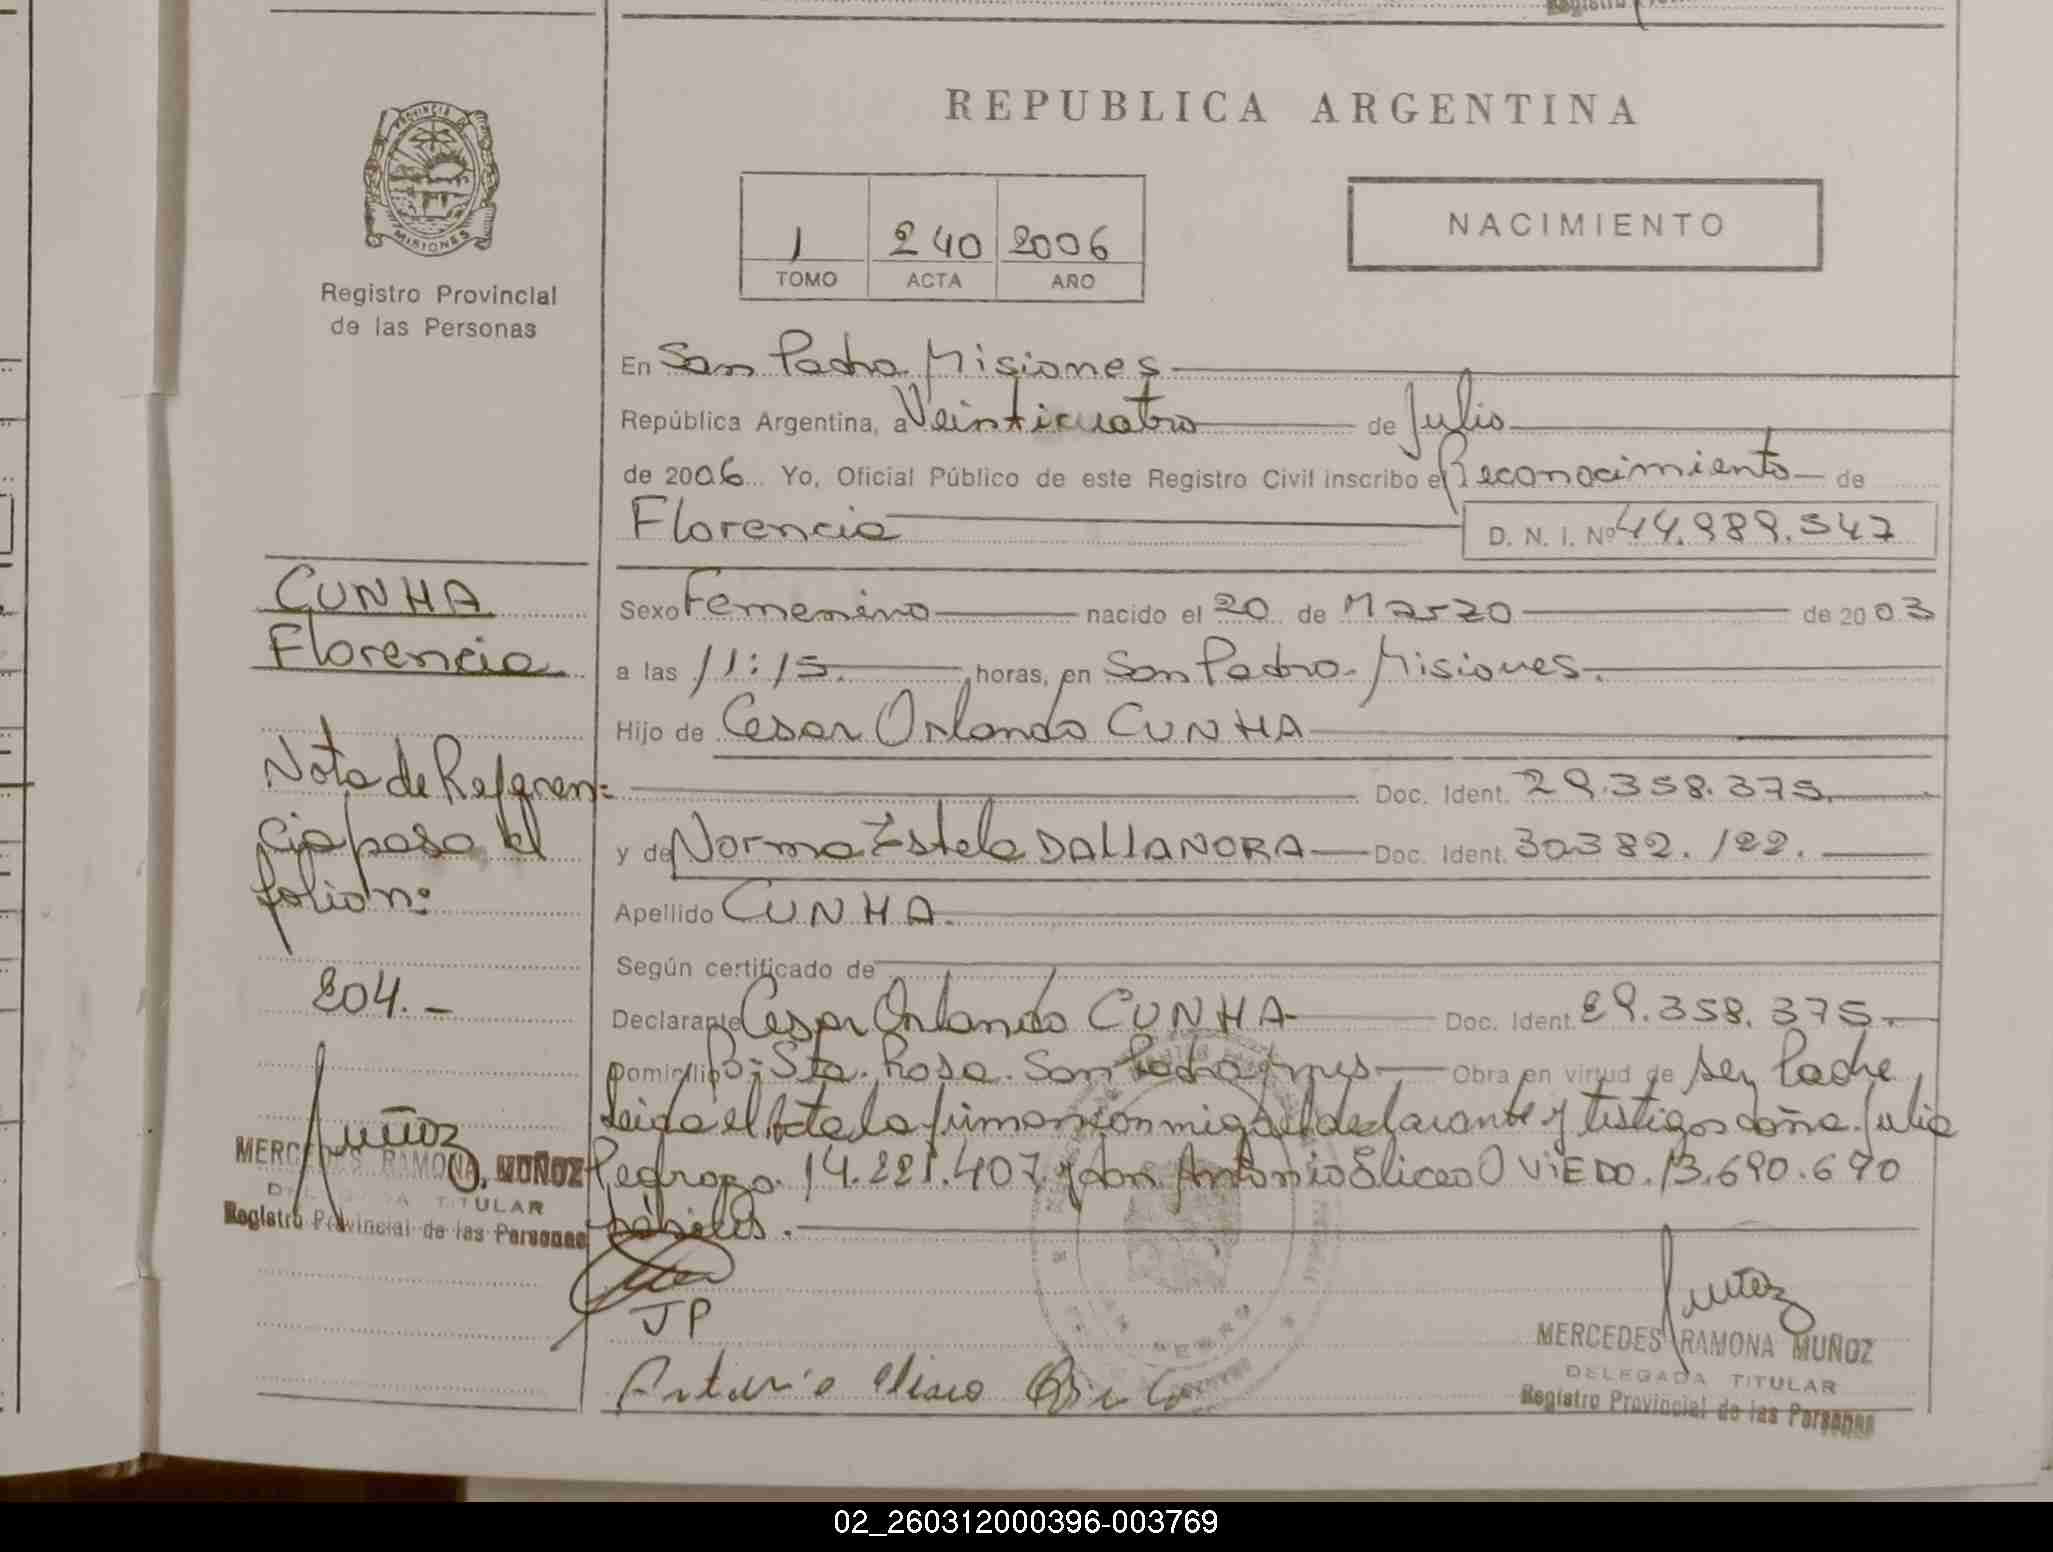 REPUBLICA ARGENTINA
PROVINCIA DE
MISIONES
Registro Provincial
de las Personas
1 240 2006
TOMO ACTA AÑO
NACIMIENTO
En San Pedro Misiones
República Argentina, a Veinticuatro de Julio
de 2006 Yo, Oficial Público de este Registro Civil inscribo el Reconocimiento de
Florencia D. N. I. Nº 44.989.547
Sexo Femenino nacido el 20 de Marzo de 2003
a las 11:15. horas, en San Pedro. Misiones.
Hijo de Cesar Orlando CUNHA
Doc. Ident. 29.358.375.
y de Norma Estela DALLANORA Doc. Ident. 30382.122.
Apellido CUNHA.
Según certificado de
Declarante Cesar Orlando CUNHA Doc. Ident. 29.358.375.
Domicilio B: Sta. Rosa. San Pedro Mnes Obra en virtud de ser Padre
Leida el Acta la firman conmigo el declarante y testigos doña. Julia
Pedrozo. 14.221.407 y don Antonio Eliceo OVIEDO. 13.690.690
hábiles.
CUNHA
Florencia
Nota de Referen=
cia pasa al
folio n:
204.-
Muñoz
MERCEDES RAMONA MUÑOZ
DELEGADA TITULAR
Registro Provincial de las Personas
JP
Muñoz
MERCEDES RAMONA MUÑOZ
DELEGADA TITULAR
Registro Provincial de las Personas
02_260312000396-003769